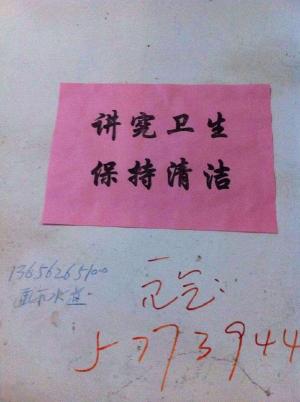 讲究卫生
保持清洁
13656265100
疏下水道
5773944